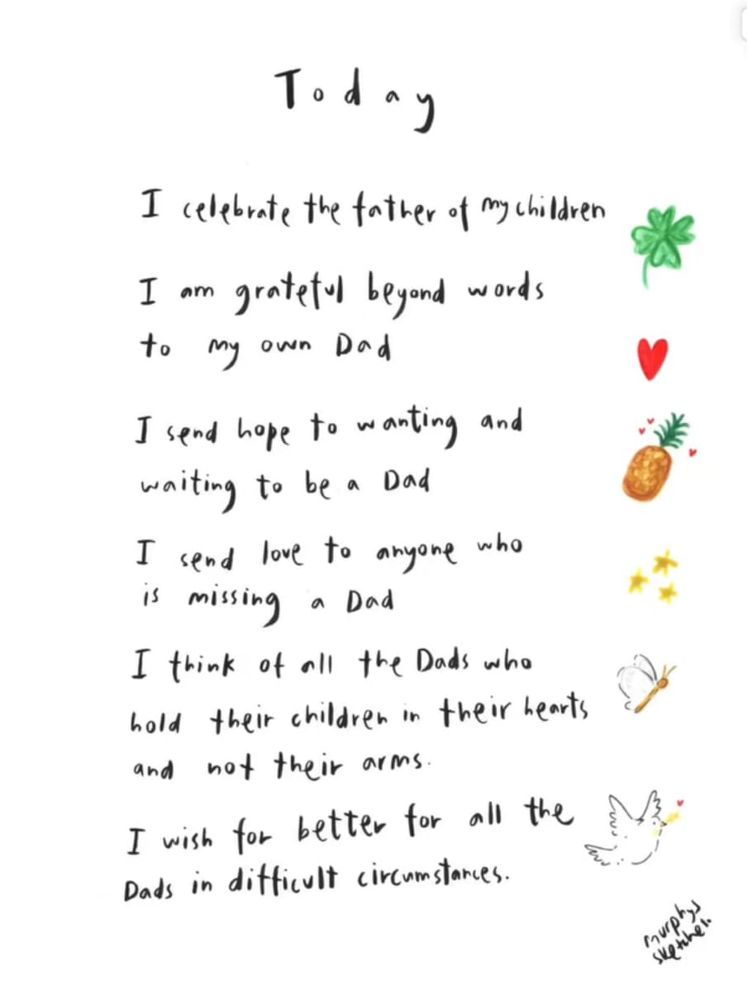 Today
I celebrate the father of my children
I am grateful beyond words
to my own Dad
I send hope to wanting and
waiting to be a Dad
I send love to anyone who
is missing a Dad
I think of all the Dads who
hold their children in their hearts
and not their arms.
I wish for better for all the
Dads in difficult circumstances.
murphys
sketches.